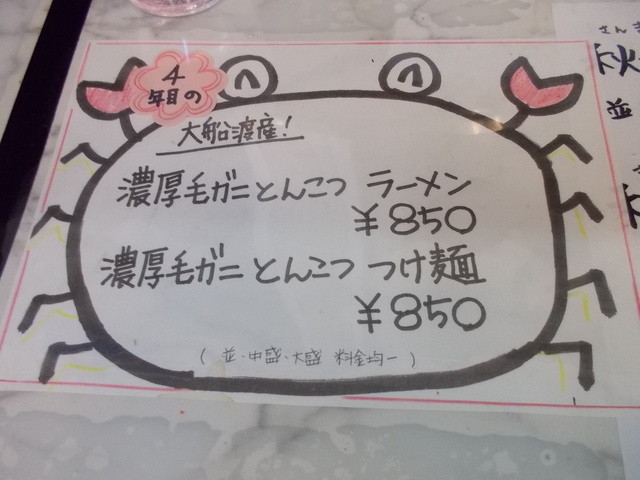 4
年目の
大船渡産!
濃厚毛ガニとんこつ ラーメン
¥850
濃厚毛ガニとんこつ つけ麺
¥850
(並・中盛・大盛 料金均一)
さん
並